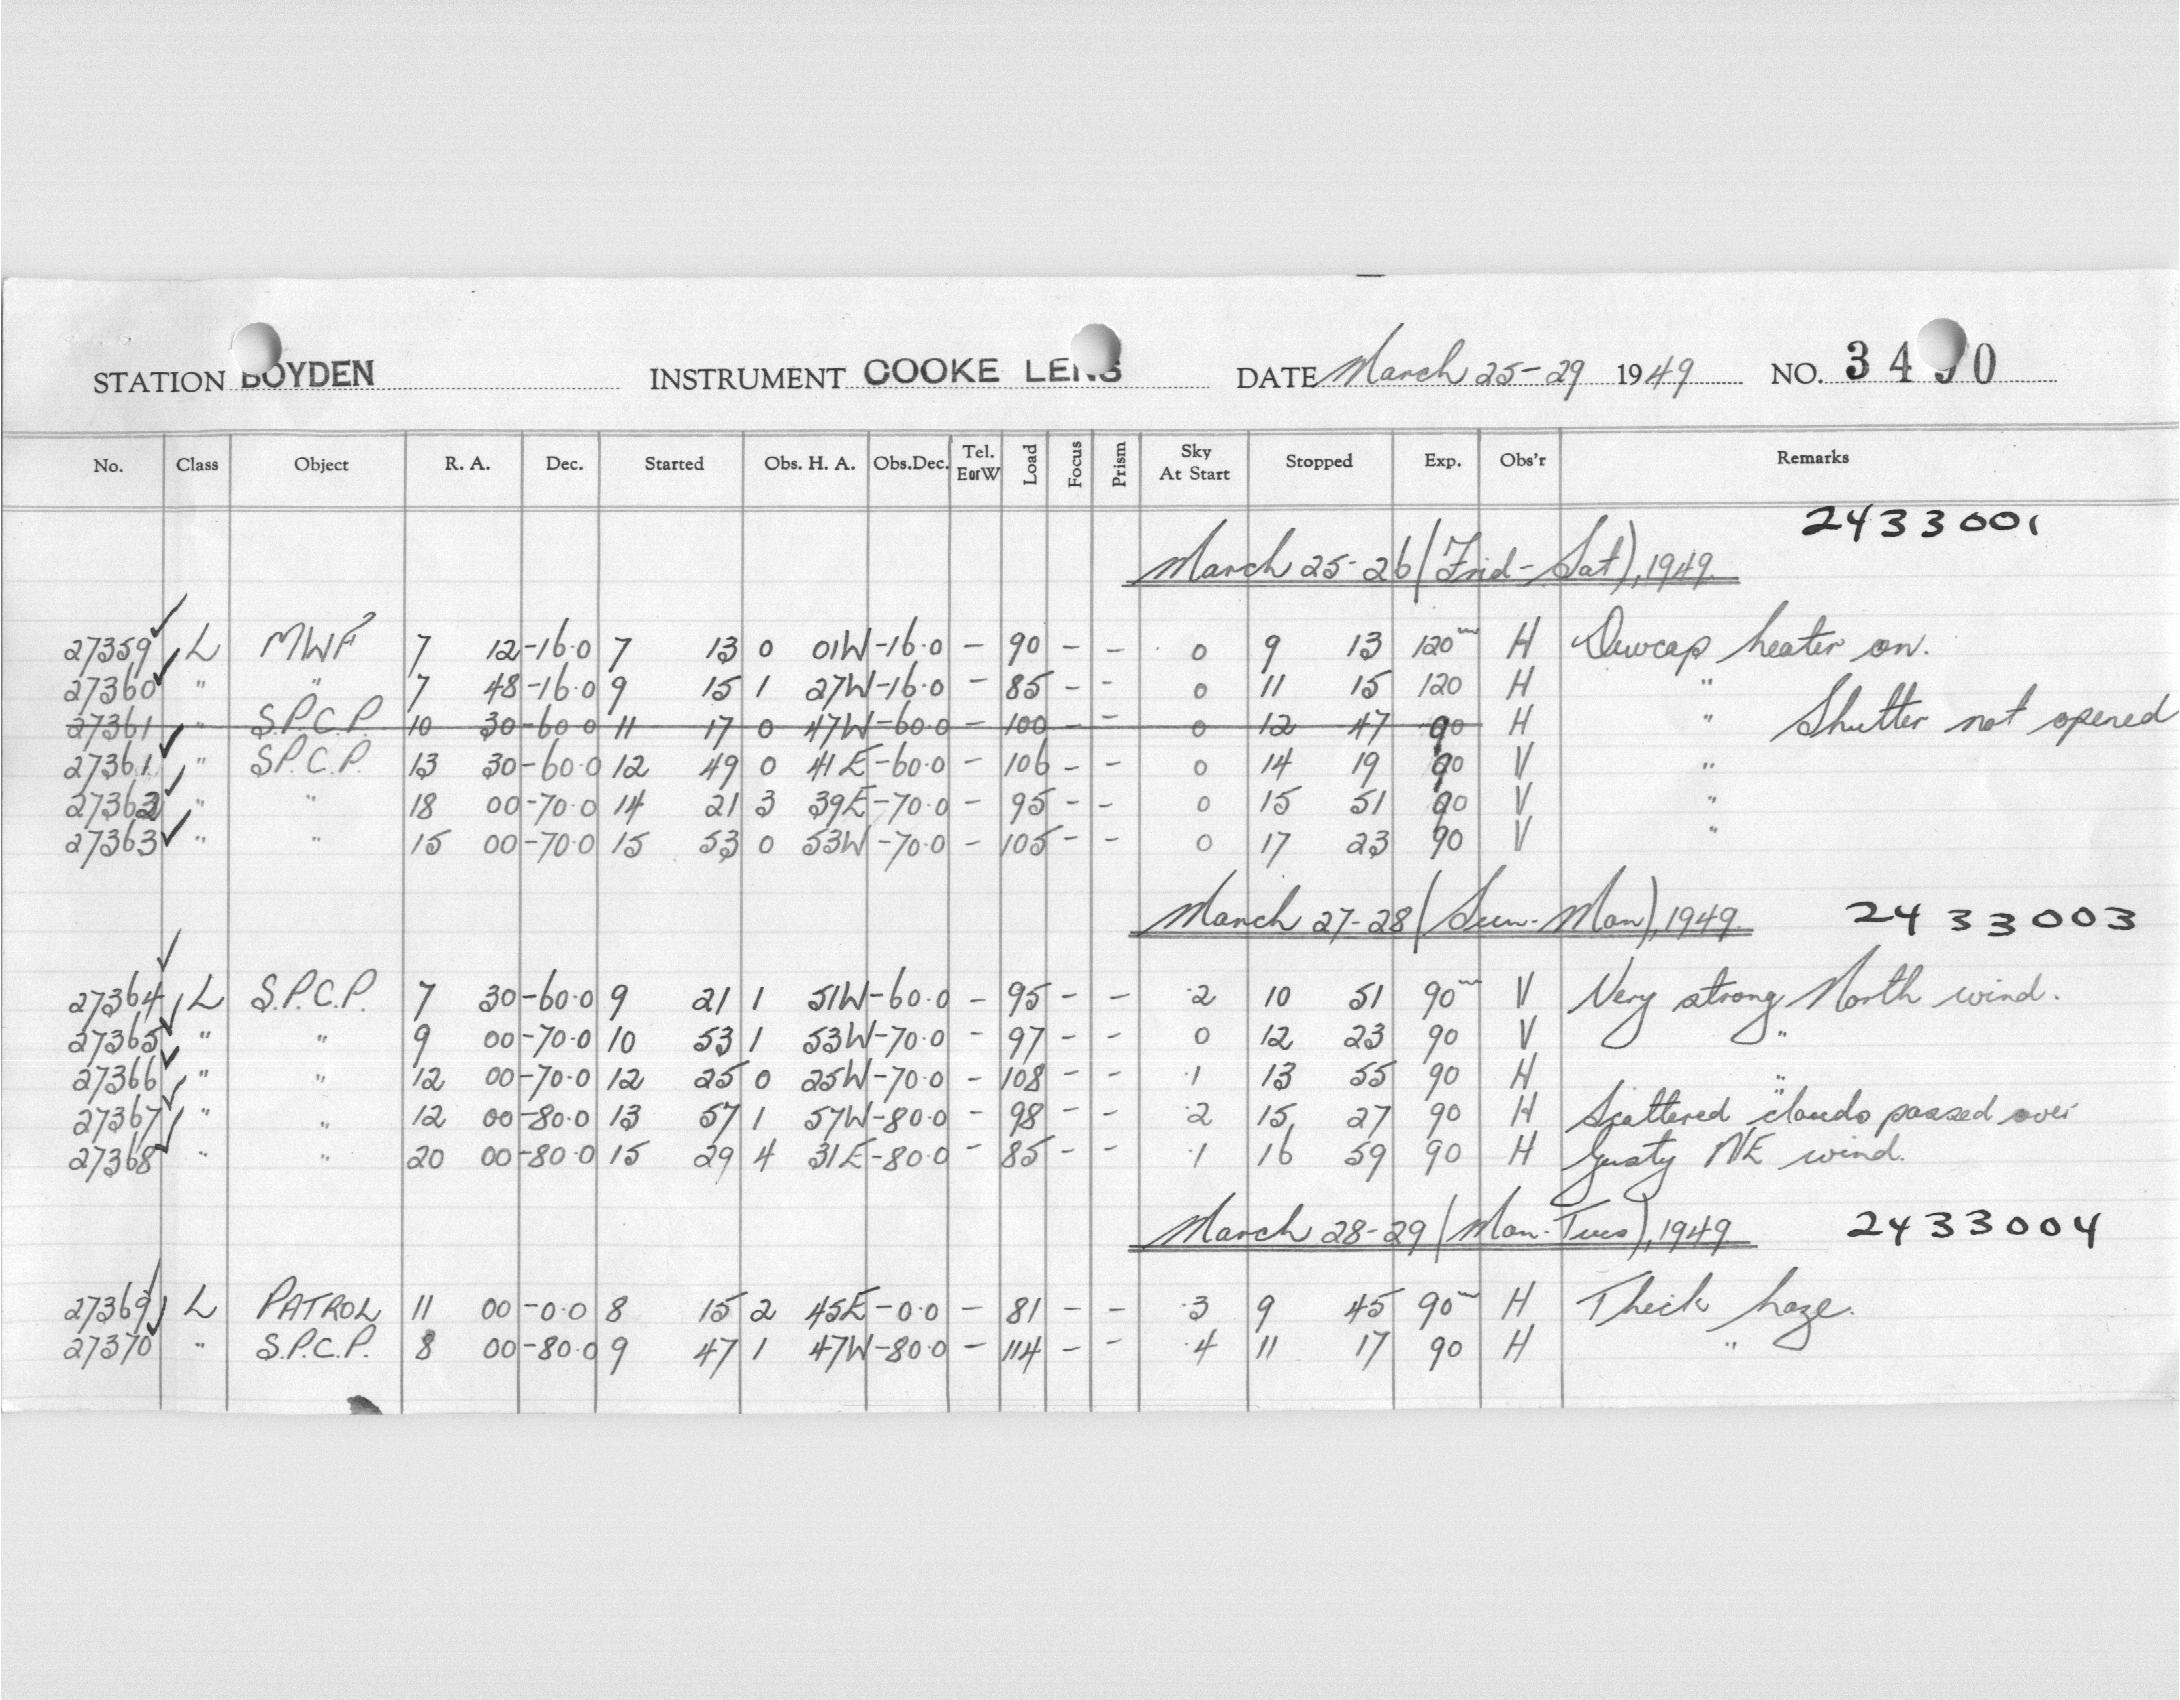 STATION BOYDEN INSTRUMENT COOKE LENS DATE March 25-29 1949 NO. 3490
No. Class Object R. A. Dec. Started Obs. H. A. Obs.Dec. Tel. EorW Load Focus Prism Sky At Start Stopped Exp. Obs'r Remarks
2433001
March 25-26 (Frid-Sat), 1949.
27359 L MWF 7 12 -16.0 7 13 0 01W -16.0 - 90 - - 0 9 13 120m H Dewcap heater on.
27360 " " 7 48 -16.0 9 15 1 27W -16.0 - 85 - - 0 11 15 120 H "
27361 " S.P.C.P. 10 30 -60.0 11 17 0 47W -60.0 - 100 - - 0 12 47 90 H " Shutter not opened
27361 " S.P.C.P. 13 30 -60.0 12 49 0 41E -60.0 - 106 - - 0 14 19 90 V "
27362 " " 18 00 -70.0 14 21 3 39E -70.0 - 95 - - 0 15 51 90 V "
27363 " " 15 00 -70.0 15 53 0 53W -70.0 - 105 - - 0 17 23 90 V "
March 27-28 (Sun-Mon), 1949. 2433003
27364 L S.P.C.P. 7 30 -60.0 9 21 1 51W -60.0 - 95 - - .2 10 51 90m V Very strong North wind.
27365 " " 9 00 -70.0 10 53 1 53W -70.0 - 97 - - 0 12 23 90 V "
27366 " " 12 00 -70.0 12 25 0 25W -70.0 - 108 - - .1 13 55 90 H "
27367 " " 12 00 -80.0 13 57 1 57W -80.0 - 98 - - .2 15 27 90 H Scattered clouds passed over
27368 " " 20 00 -80.0 15 29 4 31E -80.0 - 85 - - .1 16 59 90 H Gusty NE wind.
March 28-29 (Mon-Tues), 1949 2433004
27369 L PATROL 11 00 -0.0 8 15 2 45E -0.0 - 81 - - .3 9 45 90m H Thick haze.
27370 " S.P.C.P. 8 00 -80.0 9 47 1 47W -80.0 - 114 - - .4 11 17 90 H "